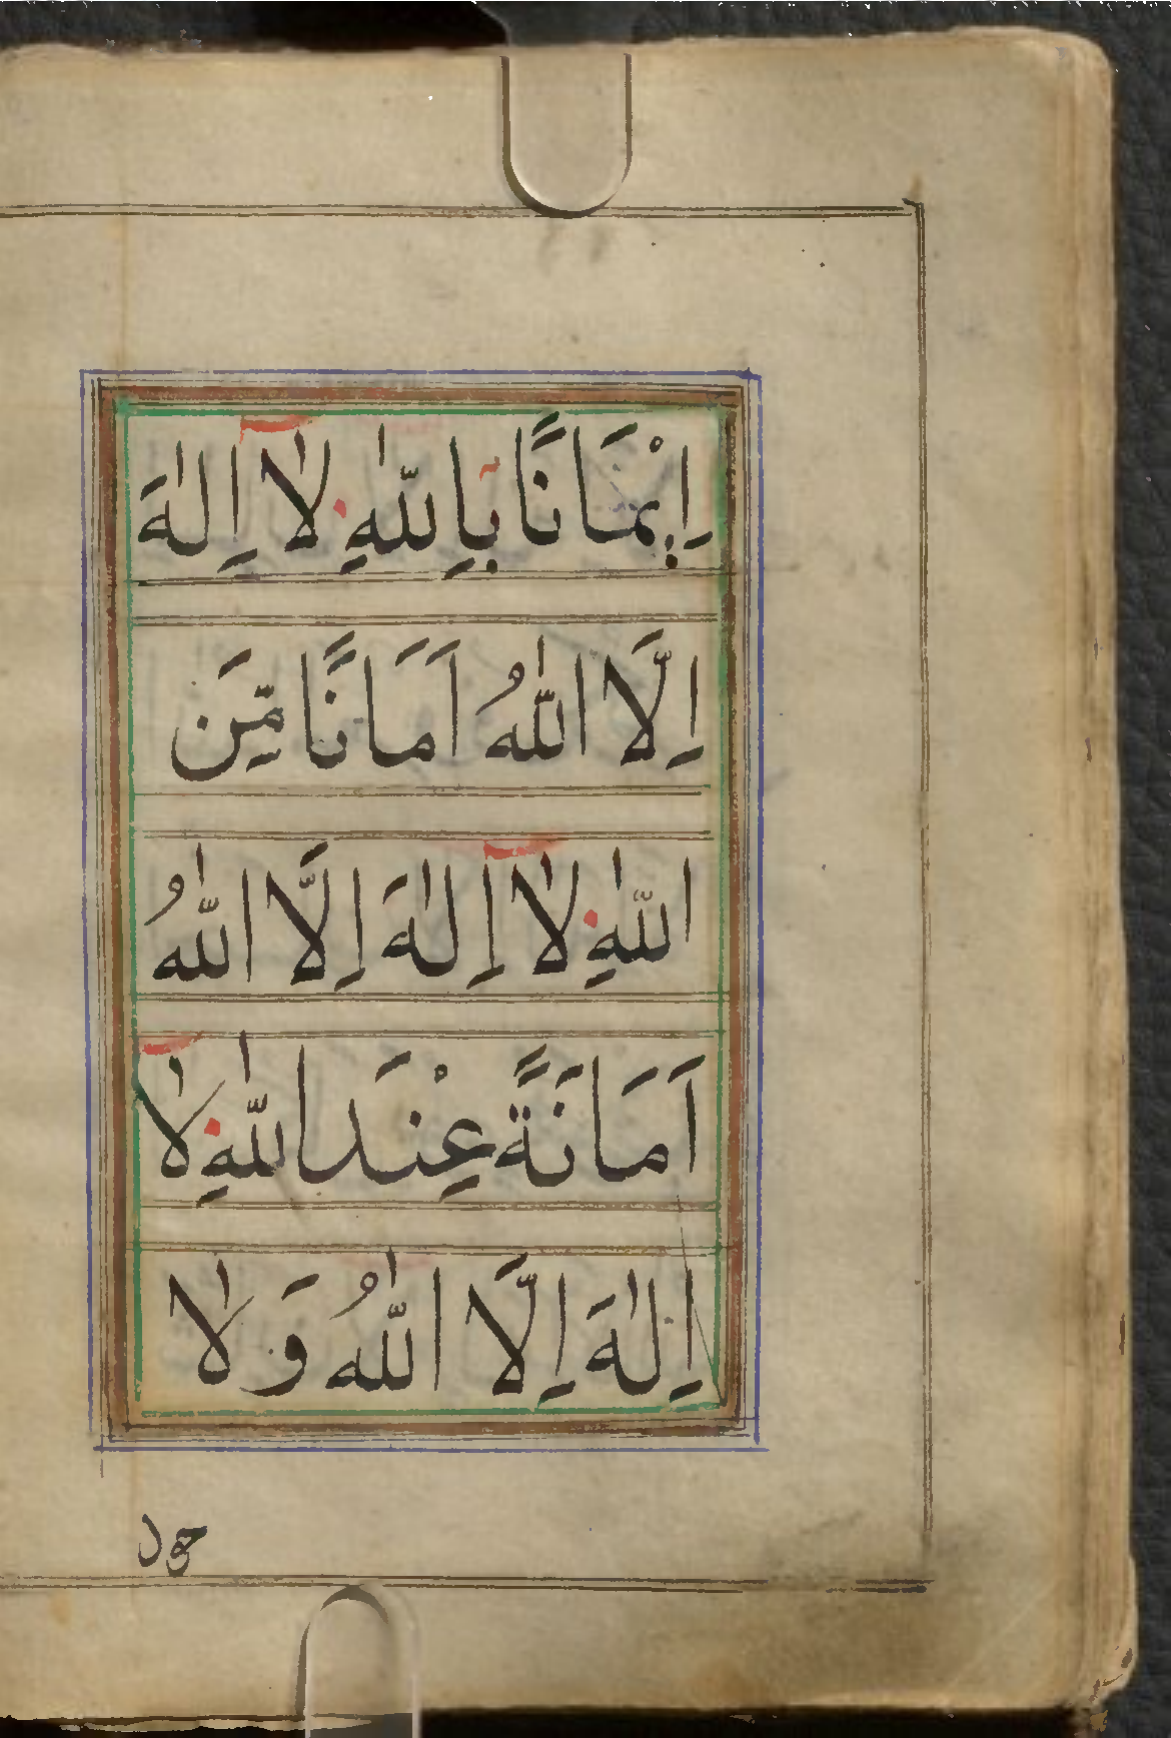 اِيْمَانًا بِاللّٰهِ لَا اِلٰهَ
اِلَّا اللّٰهُ اَمَانًا مِّنَ
اللّٰهِ لَا اِلٰهَ اِلَّا اللّٰهُ
اَمَانَةً عِنْدَ اللّٰهِ لَا
اِلٰهَ اِلَّا اللّٰهُ وَلَا
حول